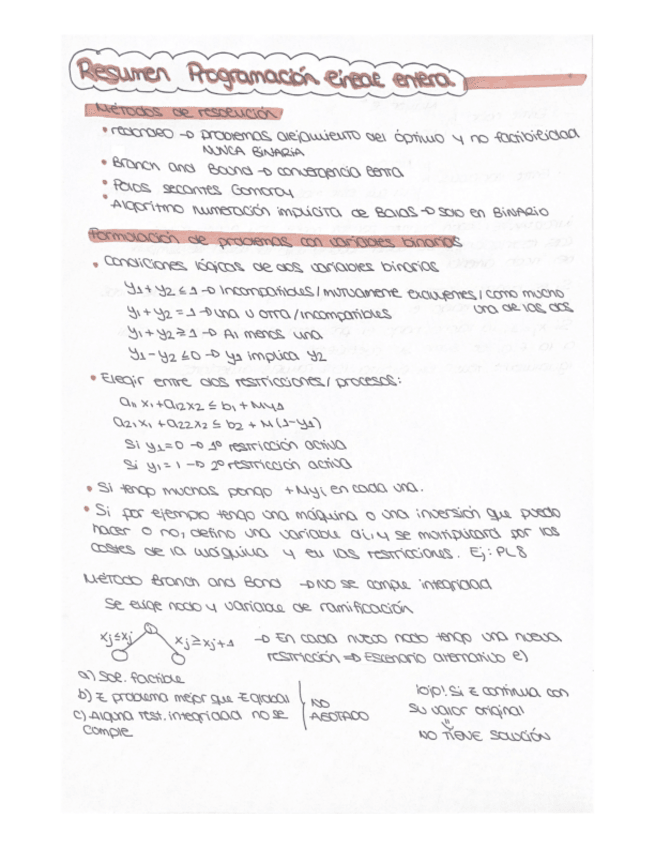 Resumen Programación lineal entera
Métodos de resolución
• redondeo → problemas alejamiento del óptimo y no factibilidad
NUNCA BINARIA
• Branch and Bound → convergencia lenta
• Planos secantes Gomory
• Algoritmo numeración implícita de Balas → solo en BINARIO
Formulación de problemas con variables binarias
• Condiciones lógicas de dos variables binarias
y1 + y2 ≤ 1 → Incompatibles / mutuamente excluyentes / como mucho
una de las dos
y1 + y2 = 1 → una u otra / incompatibles
y1 + y2 ≥ 1 → Al menos una
y1 - y2 ≤ 0 → y1 implica y2
• Elegir entre dos restricciones / procesos:
a11 x1 + a12 x2 ≤ b1 + My1
a21 x1 + a22 x2 ≤ b2 + M(1-y1)
Si y1 = 0 → 1º restricción activa
Si y1 = 1 → 2º restricción activa
• Si tengo muchas pongo + Myi en cada una.
• Si por ejemplo tengo una máquina o una inversión que puedo
hacer o no, defino una variable di, y se multiplicará por los
costes de la máquina y en las restricciones. Ej: PL8
Método Branch and Bond → no se cumple integridad
Se elige nodo y variable de ramificación
xj ≤ xj
1
xj ≥ xj + 1
→ En cada nuevo nodo tengo una nueva
restricción ⇒ Escenario alternativo e)
a) Sol. factible
b) Z problema mejor que Z global
c) Alguna rest. integridad no se
cumple
NO
AGOTADO
¡ojo! Si Z continua con
su valor original
NO TIENE SOLUCIÓN